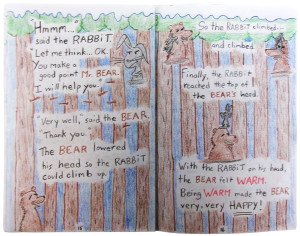 Hmmm..."
said the RABBIT.
"Let me think... OK.
You make a
good point Mr. BEAR.
I will help you."
"Very well, said the BEAR.
"Thank you."
The BEAR lowered
his head so the RABBIT
could climb up.
So the RABBIT climbed—
and climbed.
Finally, the RABBIT
reached the top of
the BEAR'S head.
With the RABBIT on his head,
the BEAR felt WARM.
Being WARM made the BEAR
very, very HAPPY!